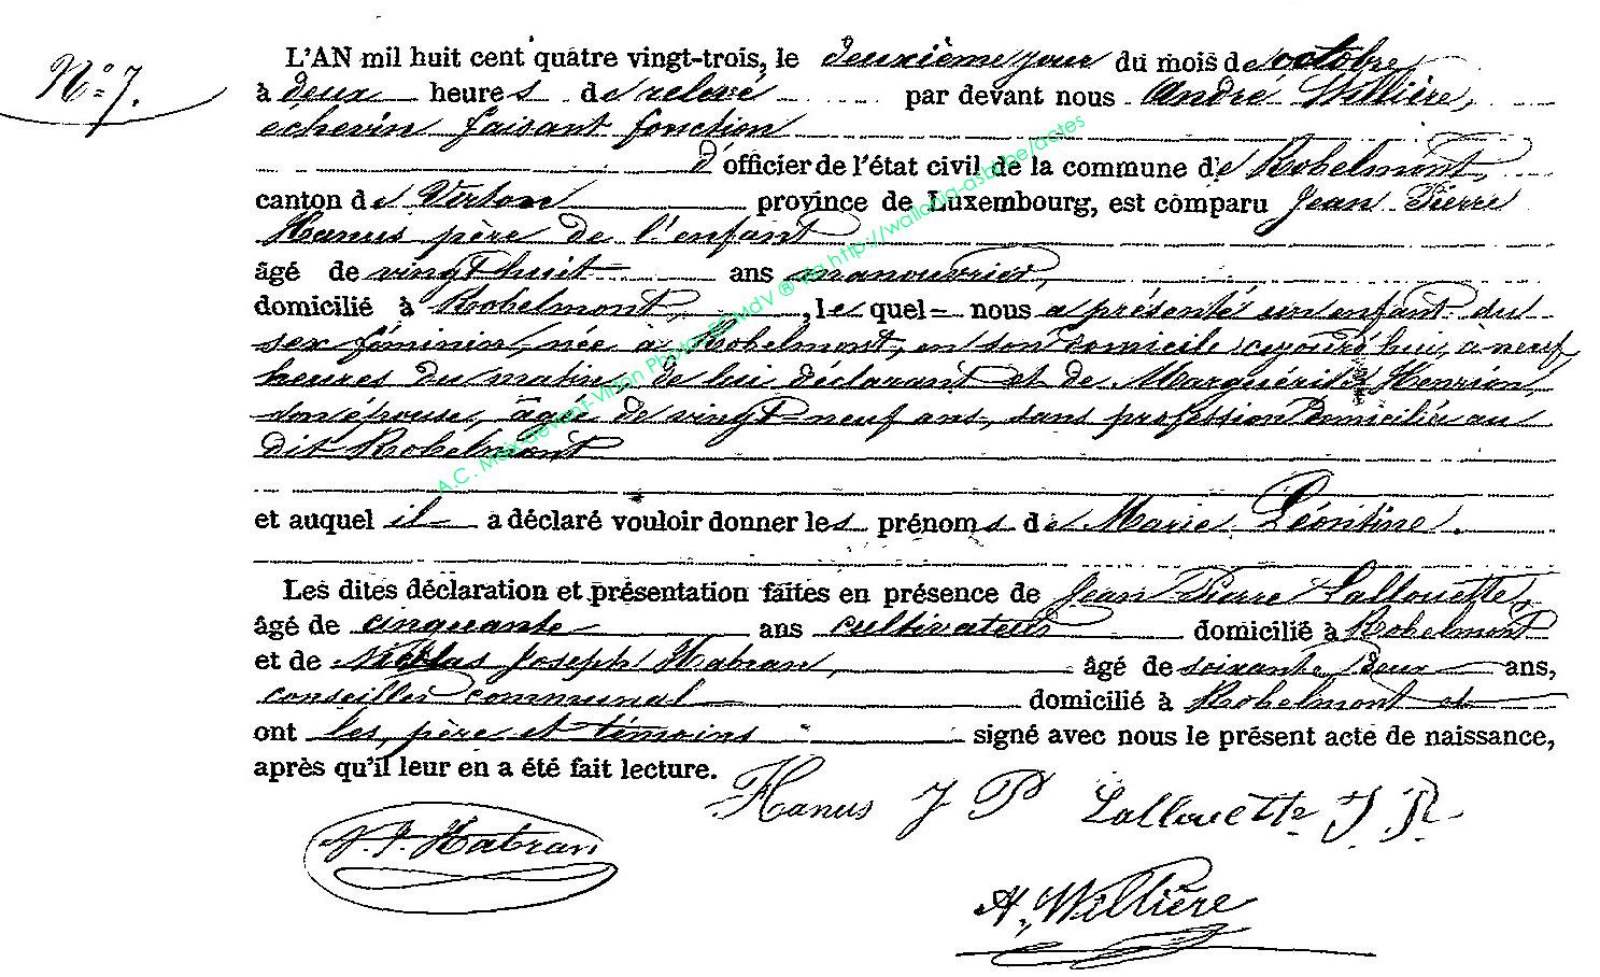 N° 7.
L'AN mil huit cent quatre vingt-trois, le deuxième jour du mois de octobre
à deux heures de relevé par devant nous André Willière,
echevin faisant fonction
d'officier de l'état civil de la commune de Robelmont,
canton de Virton province de Luxembourg, est comparu Jean Pierre
Hanus père de l'enfant
âgé de vingt huit ans manouvrier,
domicilié à Robelmont, le quel nous a présenté un enfant du
sex féminin, née à Robelmont, en son domicile cejourd'hui, à neuf
heures du matin, de lui déclarant et de Marguérite Henrion
son épouse, âgée de vingt-neuf ans, sans profession domiciliée au
dit Robelmont
et auquel il a déclaré vouloir donner les prénoms de Marie Léontine.
Les dites déclaration et présentation faites en présence de Jean Pierre Lallouette,
âgé de cinquante ans cultivateur domicilié à Robelmont
et de Nicolas Joseph Habran, âgé de soixante deux ans,
conseiller communal domicilié à Robelmont et
ont les, père et témoins signé avec nous le présent acte de naissance,
après qu'il leur en a été fait lecture.
Hanus J P Lallouette J. P.
N. J. Habran
A. Willière
A.C. Meix-devant-Virton Photos MdV ® via http://wallonia-asbl.be/actes